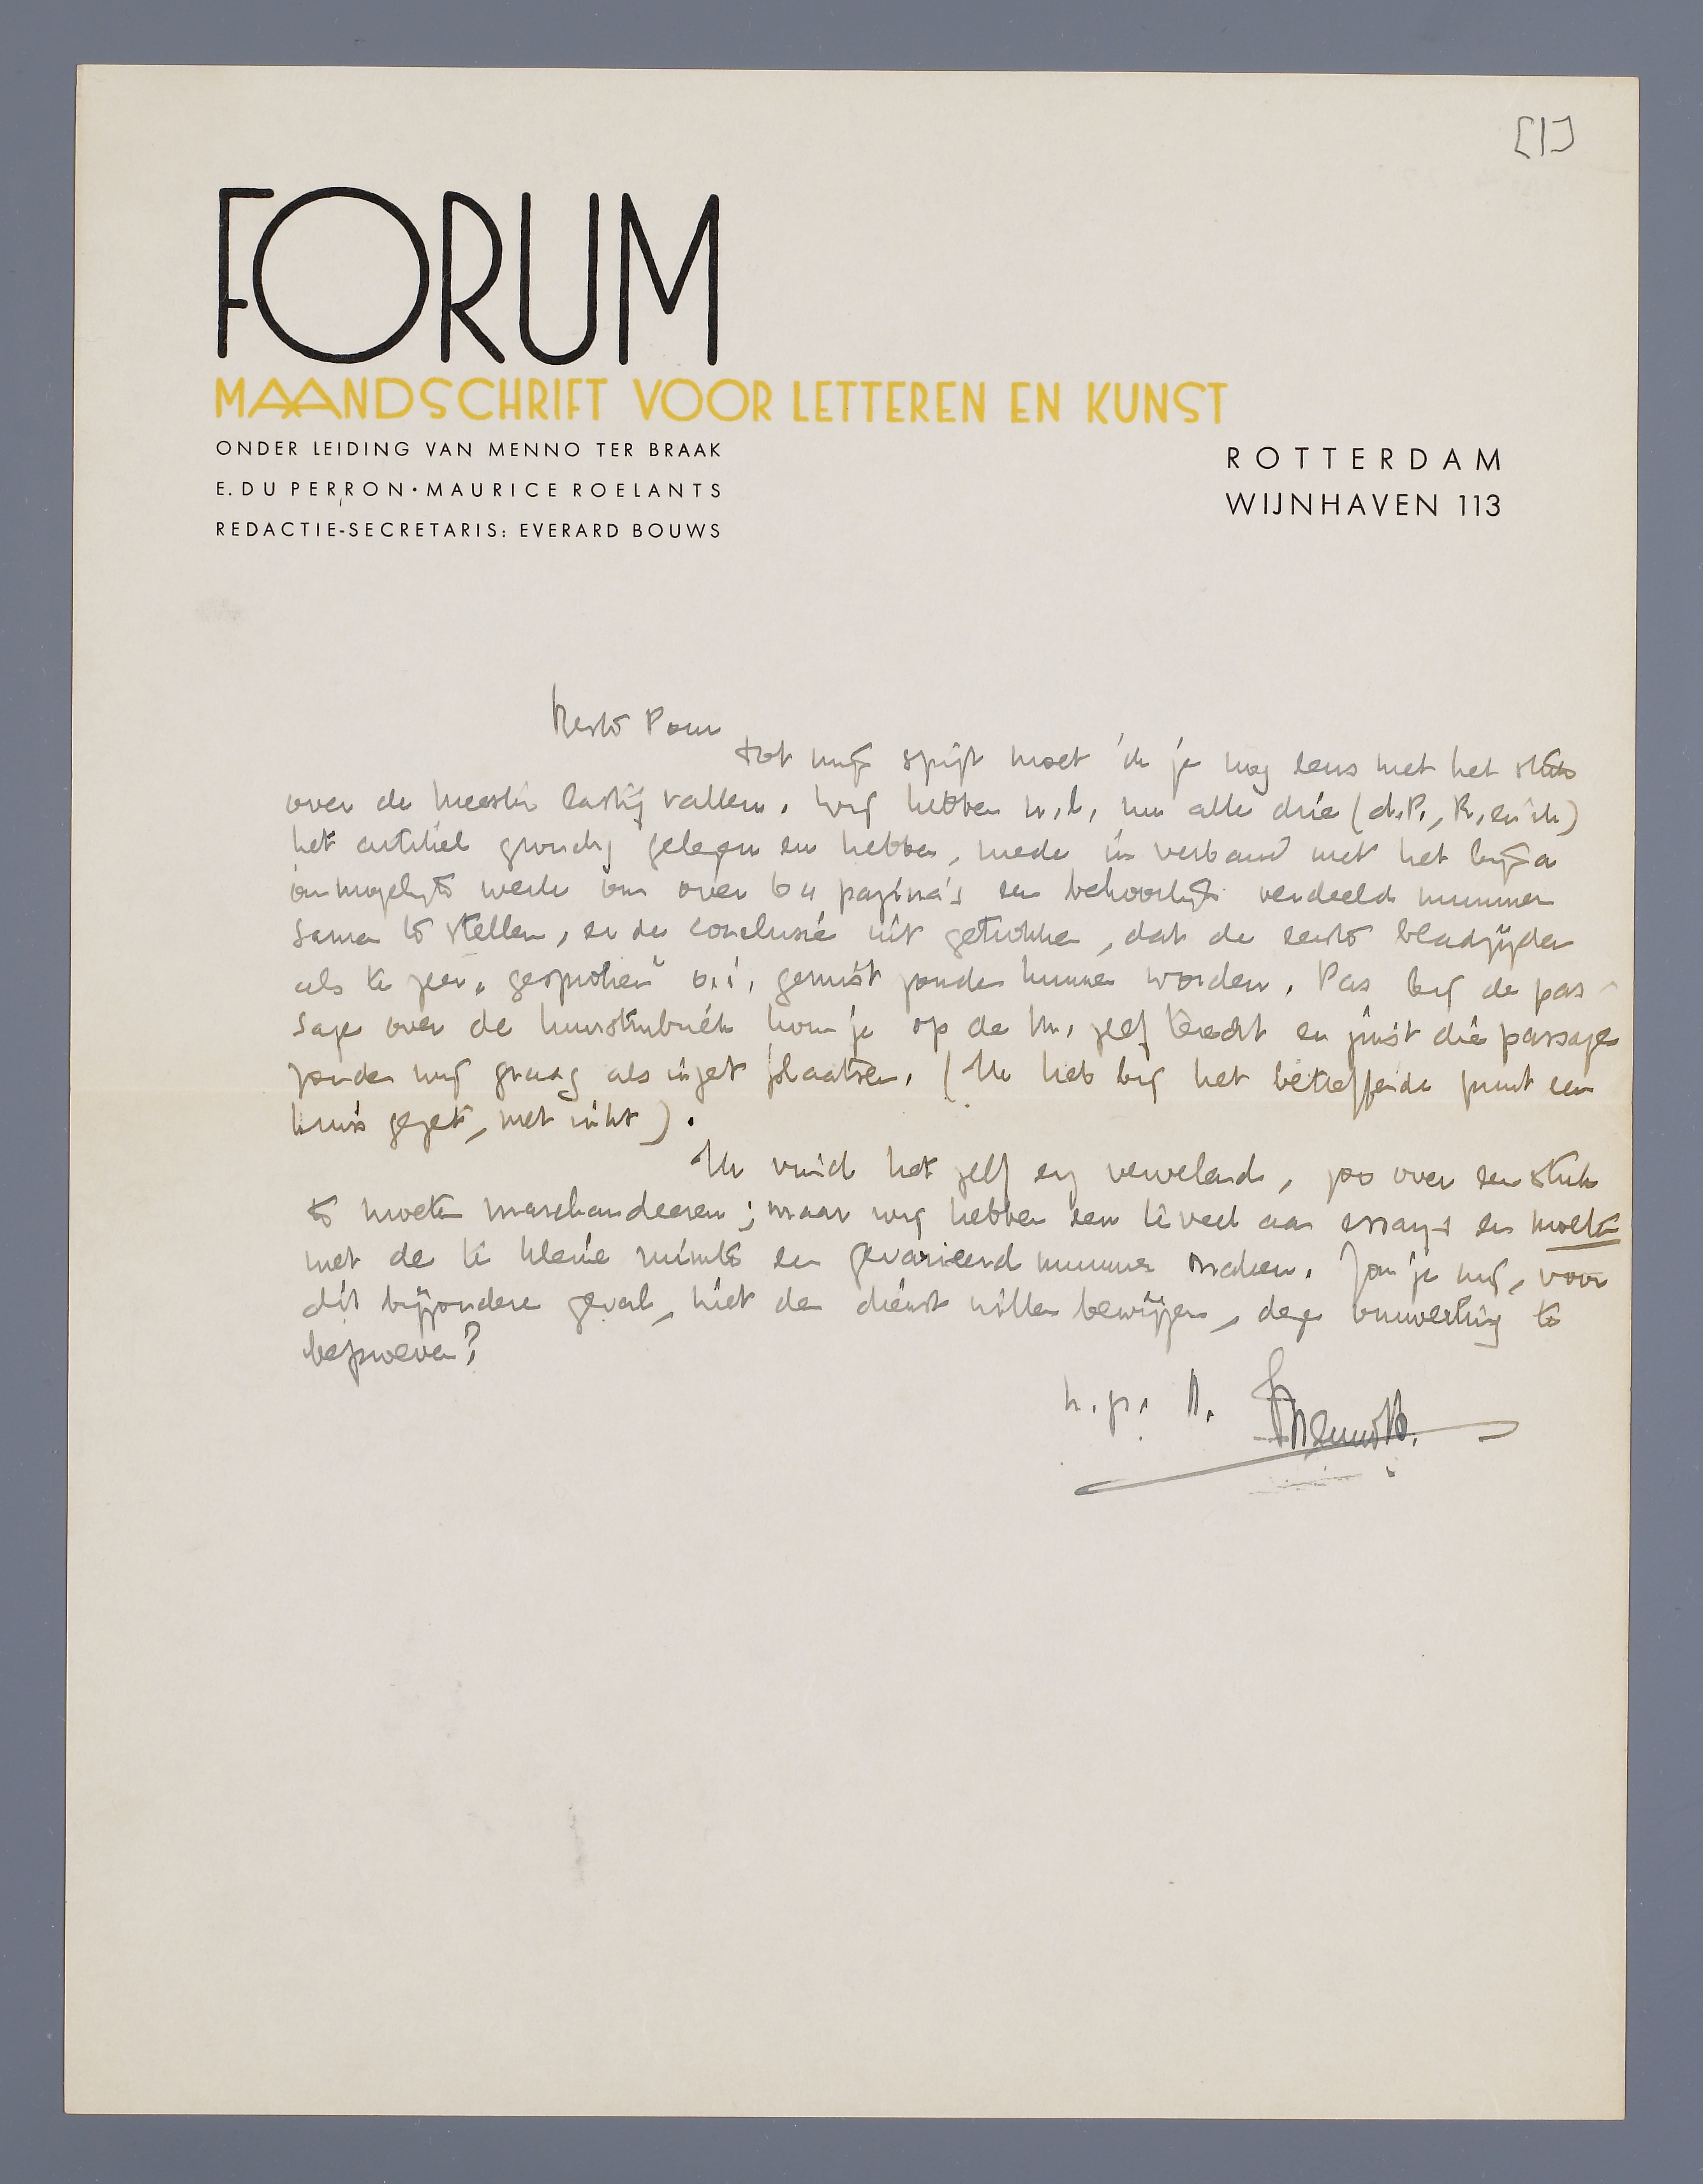 [1]
FORUM
MAANDSCHRIFT VOOR LETTEREN EN KUNST
ONDER LEIDING VAN MENNO TER BRAAK
E. DU PERRON · MAURICE ROELANTS
REDACTIE-SECRETARIS: EVERARD BOUWS
ROTTERDAM
WIJNHAVEN 113
Beste Pom
tot mijn spijt moet ik je nog eens met het stuk
over de meester lastig vallen. Wij hebben n.l. nu alle drie (d.P., R., en ik)
het artikel grondig gelezen en hebben, mede in verband met het bijna
onmogelijke werk om over 64 pagina's een behoorlijk verdeeld nummer
samen te stellen, er de conclusie uit getrokken, dat de eerste bladzijden
als te zeer „gesproken" o.i. gemist zouden kunnen worden. Pas bij de pas-
sage over de kunstrubriek kom je op de M. zelf terecht en juist die passage
zouden wij graag als inzet plaatsen. (Ik heb bij het betreffende punt een
kruis gezet, met inkt).
Ik vind het zelf erg vervelend, zoo over een stuk
te moeten marchandeeren; maar wij hebben zeer veel aan essays en moeten
met de te kleine ruimte een gevarieerd nummer maken. Zou je mij, voor
dit bijzondere geval, niet den dienst willen bewijzen, deze omwerking te
beproeven?
h.gr. t. Menno tB.